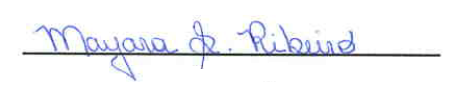 Mayara R. Ribeiro